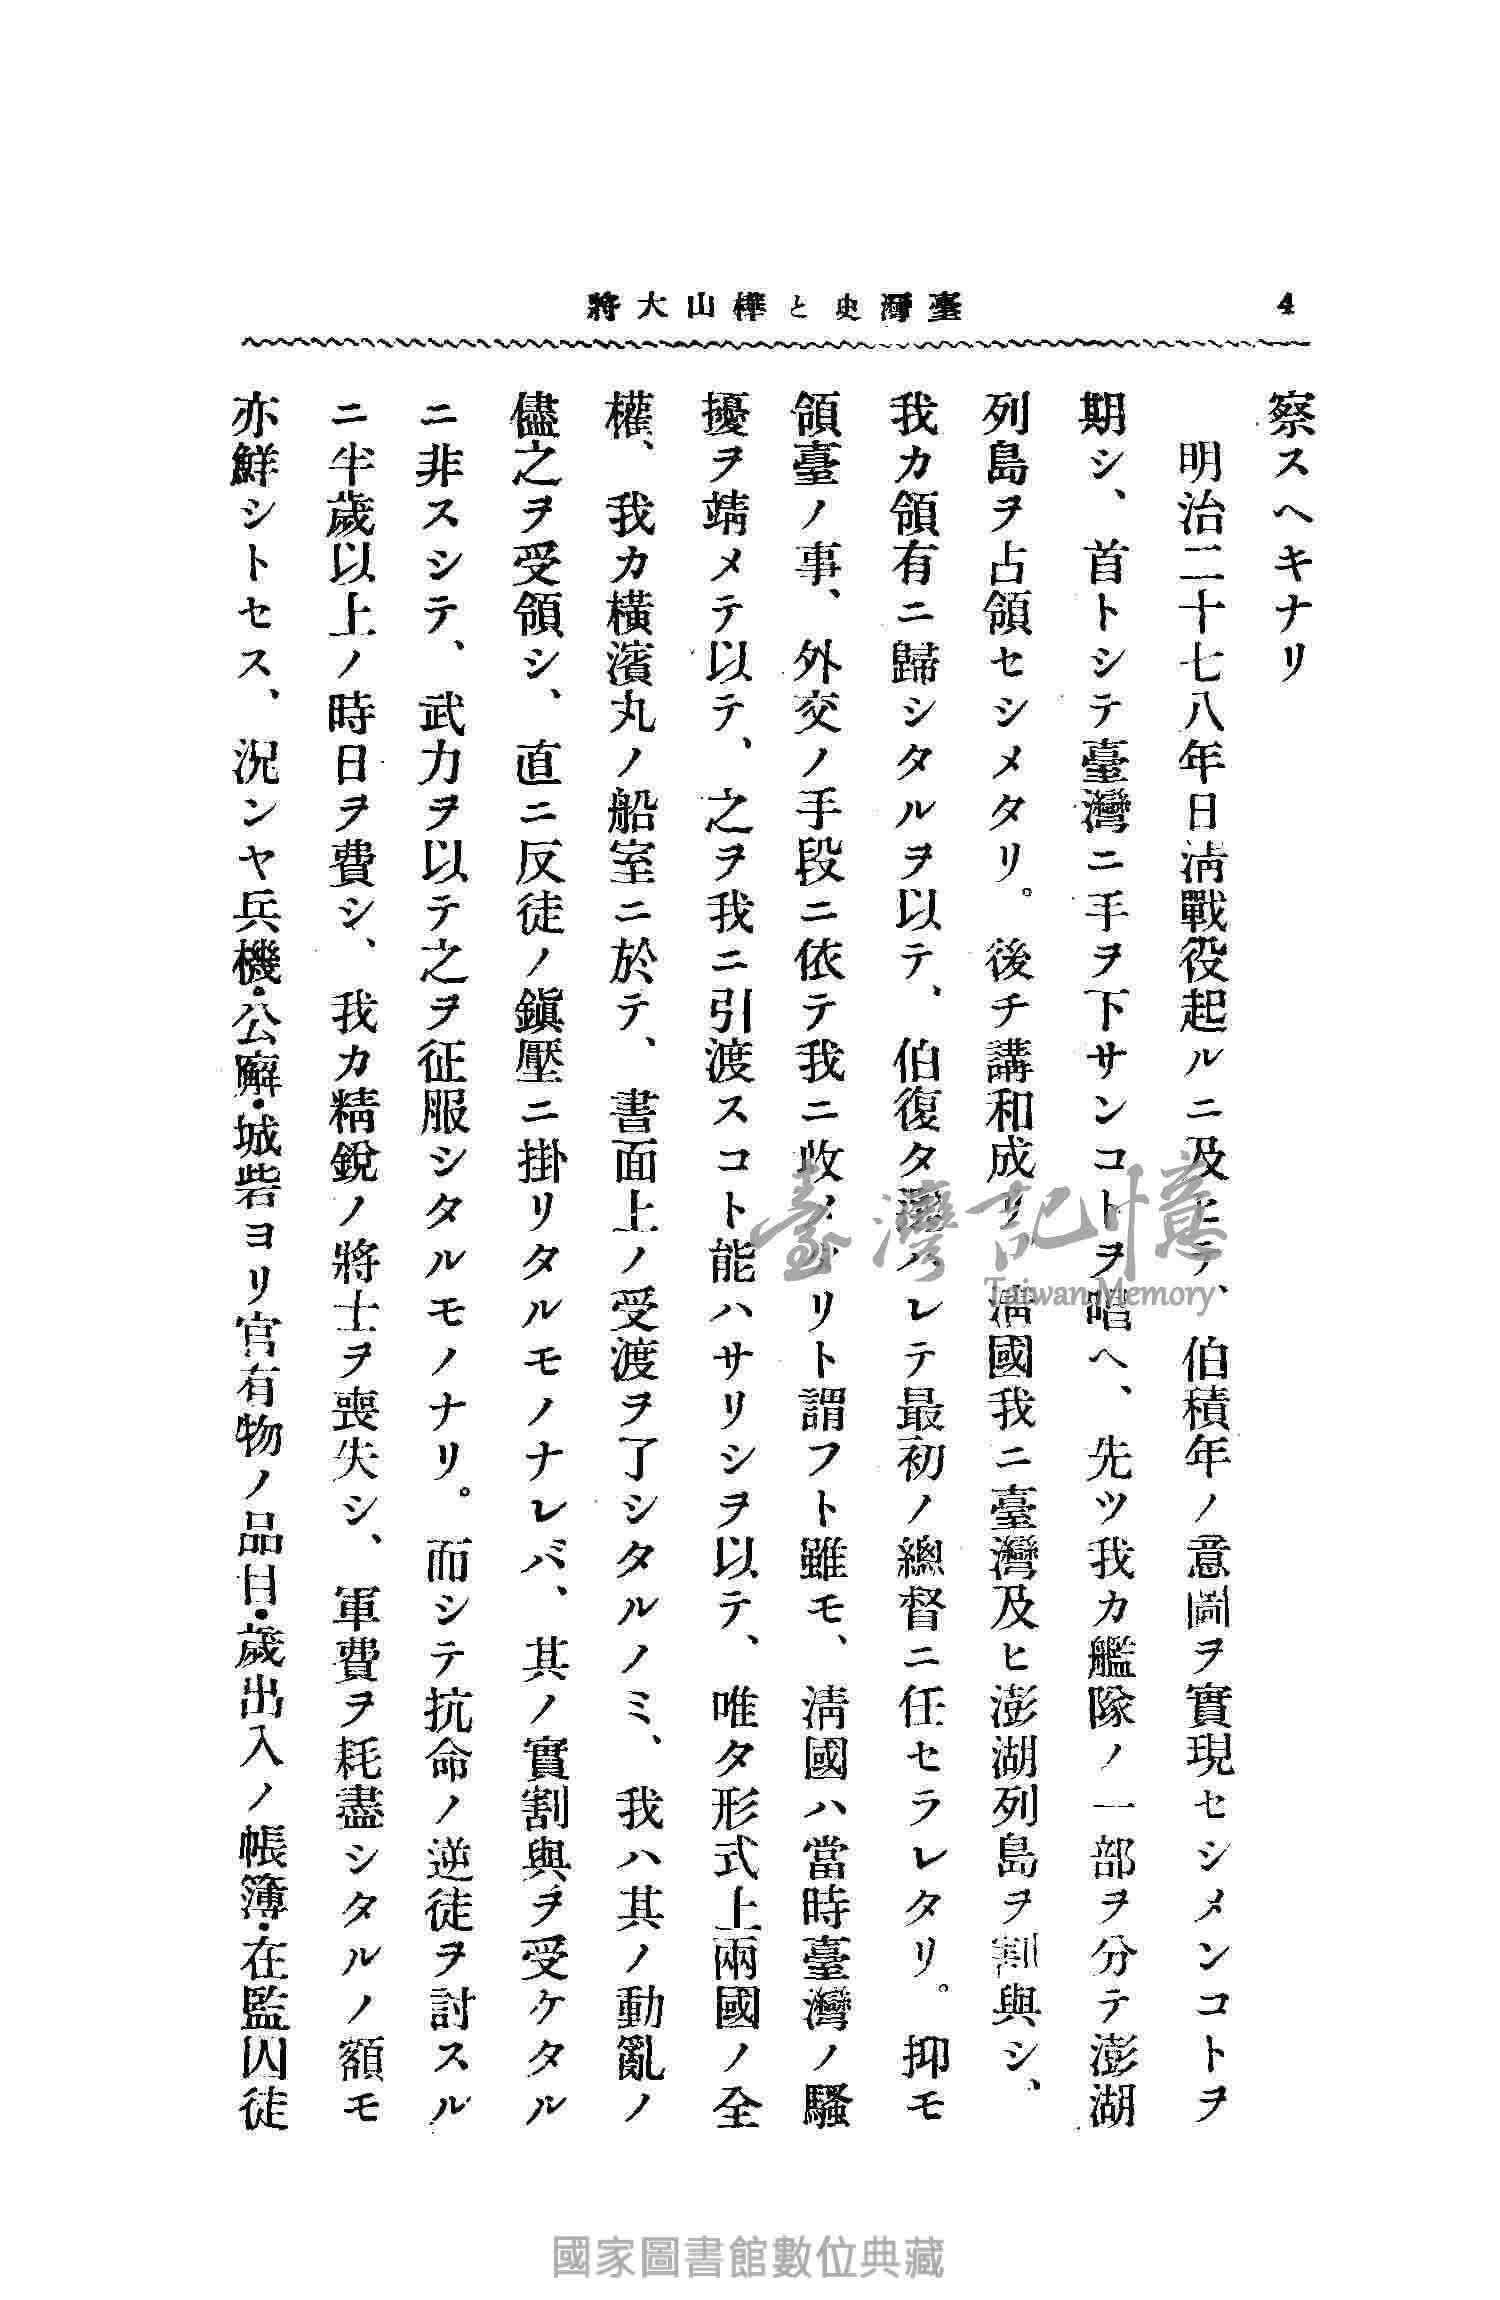 4
臺灣史と樺山大將
察スヘキナリ
明治二十七八年日淸戰役起ルニ及ヒテ、伯積年ノ意圖ヲ實現セシメンコトヲ
期シ、首トシテ臺灣ニ手ヲ下サンコトヲ唱ヘ、先ツ我カ艦隊ノ一部ヲ分テ澎湖
列島ヲ占領セシメタリ。後チ講和成リ、淸國我ニ臺灣及ヒ澎湖列島ヲ割與シ、
我カ領有ニ歸シタルヲ以テ、伯復タ選ハレテ最初ノ總督ニ任セラレタリ。抑モ
領臺ノ事、外交ノ手段ニ依テ我ニ收メタリト謂フト雖モ、淸國ハ當時臺灣ノ騷
擾ヲ靖メテ以テ、之ヲ我ニ引渡スコト能ハサリシヲ以テ、唯タ形式上兩國ノ全
權、我カ橫濱丸ノ船室ニ於テ、書面上ノ受渡ヲ了シタルノミ、我ハ其ノ動亂ノ
儘之ヲ受領シ、直ニ反徒ノ鎭壓ニ掛リタルモノナレバ、其ノ實割與ヲ受ケタル
ニ非スシテ、武力ヲ以テ之ヲ征服シタルモノナリ。而シテ抗命ノ逆徒ヲ討スル
ニ半歲以上ノ時日ヲ費シ、我カ精銳ノ將士ヲ喪失シ、軍費ヲ耗盡シタルノ額モ
亦鮮シトセス、況ンヤ兵機・公廨・城砦ヨリ官有物ノ品目・歲出入ノ帳簿・在監囚徒
臺灣記憶
Taiwan Memory
國家圖書館數位典藏